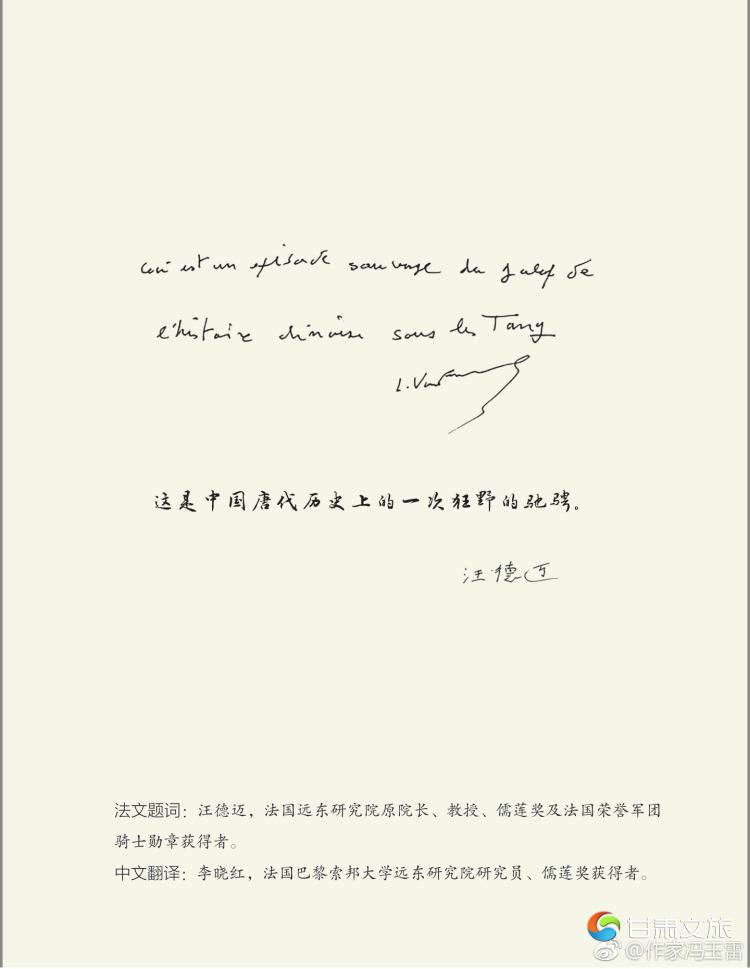 est un épisode sauvage du galop de
l'histoire chinoise sous les Tang
L. Van
这是中国唐代历史上的一次狂野的驰骋。
汪德迈
法文题词：汪德迈，法国远东研究院原院长、教授、儒莲奖及法国荣誉军团
骑士勋章获得者。
中文翻译：李晓红，法国巴黎索邦大学远东研究院研究员、儒莲奖获得者。
甘肃文旅
@作家冯玉雷